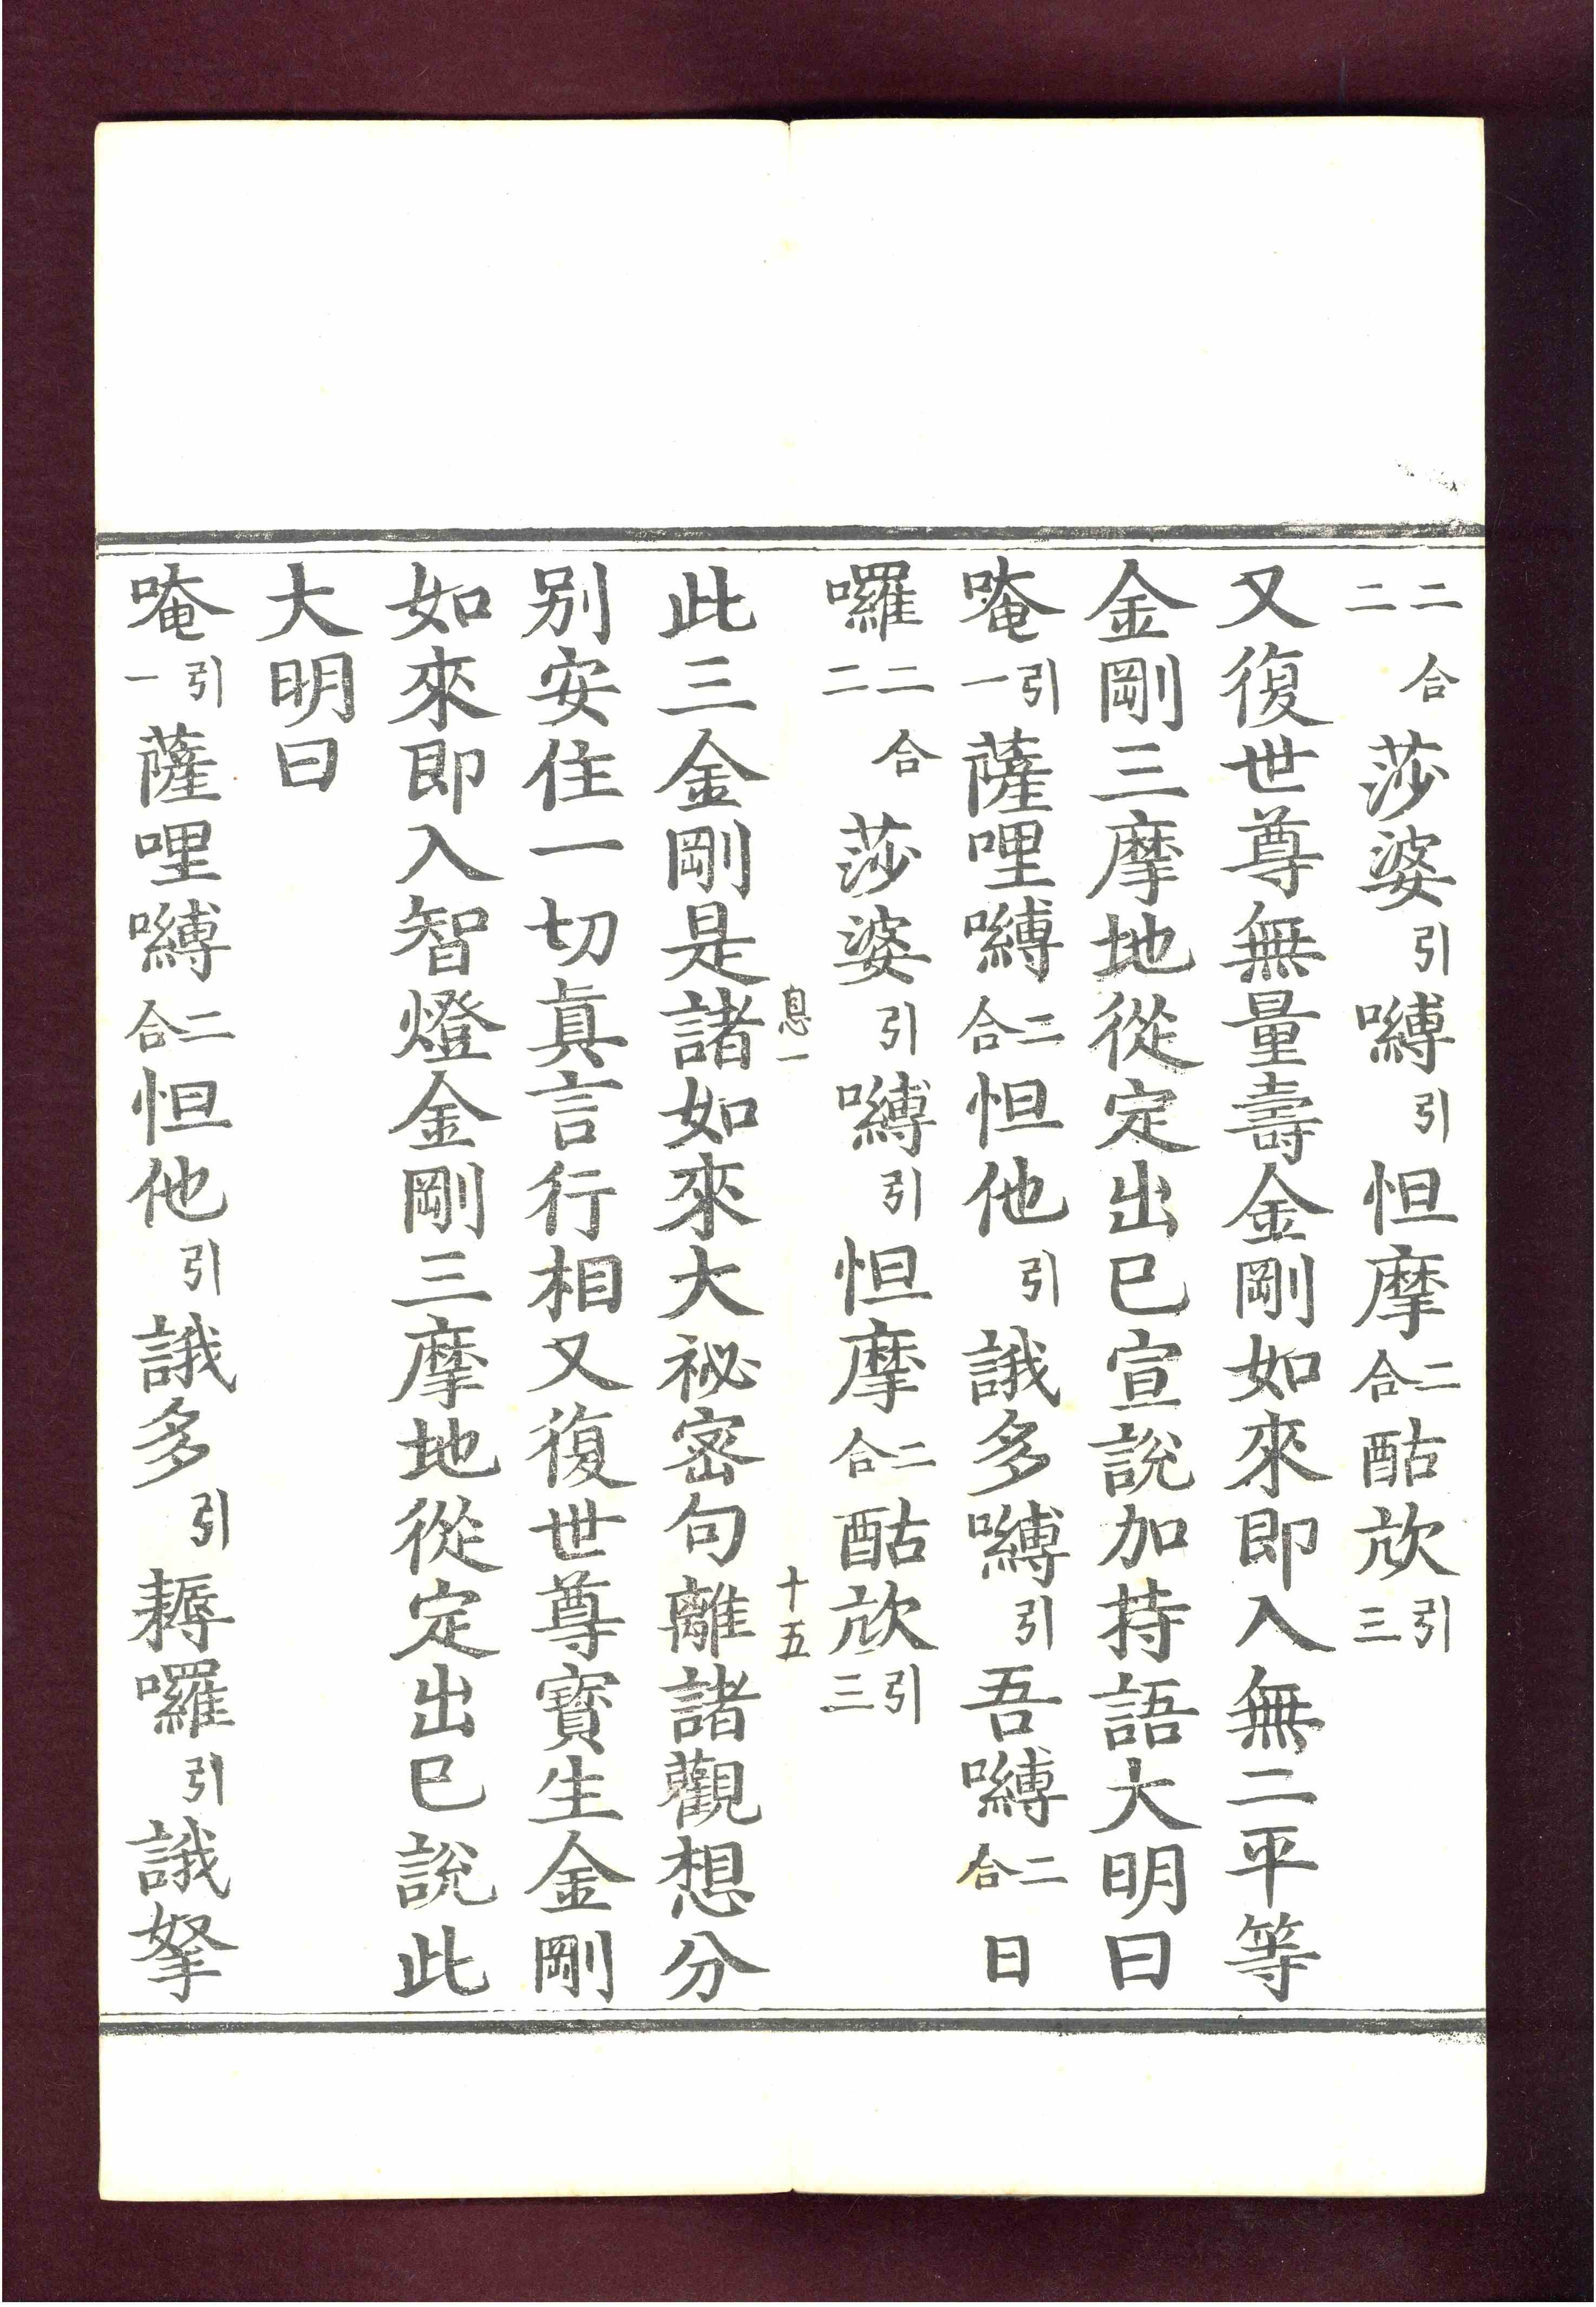 二合二莎婆引嚩引怛摩二合酤欱引三
又復世尊無量壽金剛如來即入無二平等
金剛三摩地從定出已宣說加持語大明曰
唵引一薩哩嚩二合怛他引誐多嚩引吾嚩二合日
囉二合二莎婆引嚩引怛摩二合酤欱引三
息一 十五
此三金剛是諸如來大祕密句離諸觀想分
别安住一切真言行相又復世尊寶生金剛
如來即入智燈金剛三摩地從定出已說此
大明曰
唵引一薩哩嚩二合怛他引誐多引耨囉引誐拏